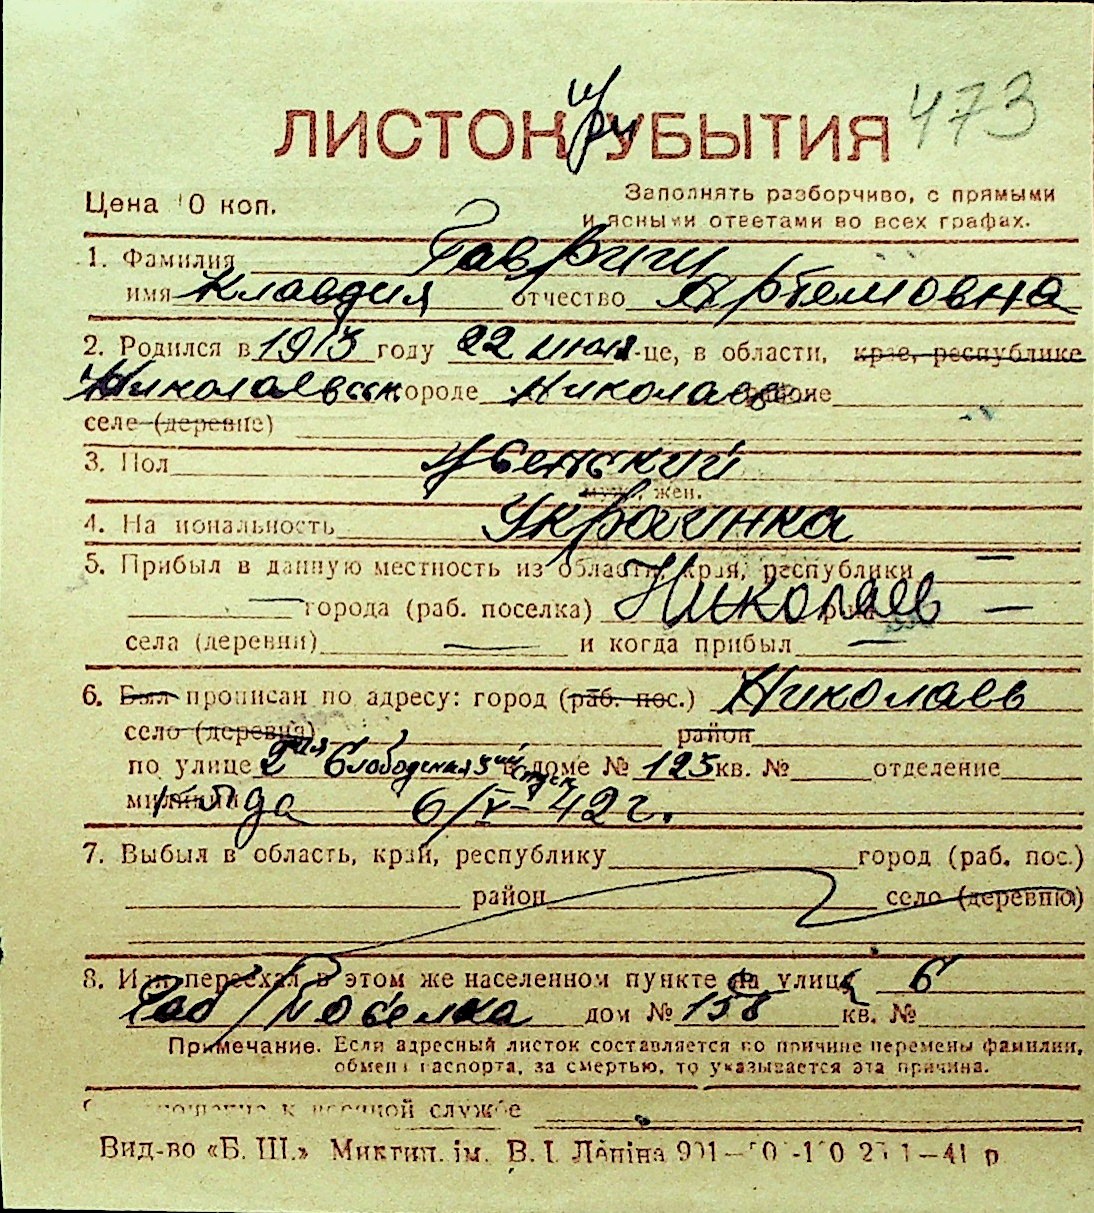 473
ЛИСТОК УБЫТИЯ
Цена 10 коп.
Заполнять разборчиво, с прямыми
и ясными ответами во всех графах.
1. Фамилия Гаврищ
имя Клавдия отчество Артемовна
2. Родился в 1913 году 22 июля -це, в области, крае, республике
Николаевск городе Николаев районе
селе (деревне)
3. Пол Женский
муж., жен.
4. Национальность Украинка
5. Прибыл в данную местность из области, края, республики —
— города (раб. поселка) Николаев —
села (деревни) — и когда прибыл —
6. Был прописан по адресу: город (раб. пос.) Николаев
село (деревня) район
по улице 2ая Слободская 3ий в доме № 125 кв. № отделение
милиции 6/V-42 г.
7. Выбыл в область, край, республику город (раб. пос.)
район село (деревню)
8. Или переехал в этом же населенном пункте на улицу 6
Раб/Поселка дом № 158 кв. №
Примечание. Если адресный листок составляется по причине перемены фамилии,
обмена паспорта, за смертью, то указывается эта причина.
к военной службе
Вид-во «Б. Ш.» Миктип. ім. В. І. Леніна